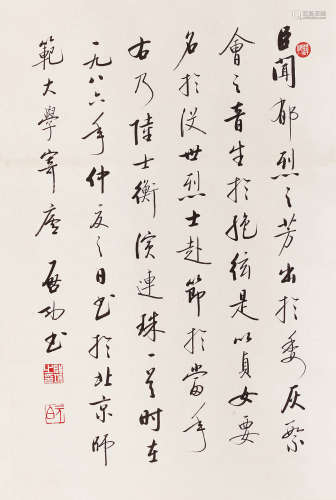 臣聞郁烈之芳出於委灰繁
會之音生於絶弦是以貞女要
名於沒世烈士赴節於當年
右乃陸士衡演連珠一首時在
一九八六年仲夏之日書於北京師
範大學寄廬 啓功書